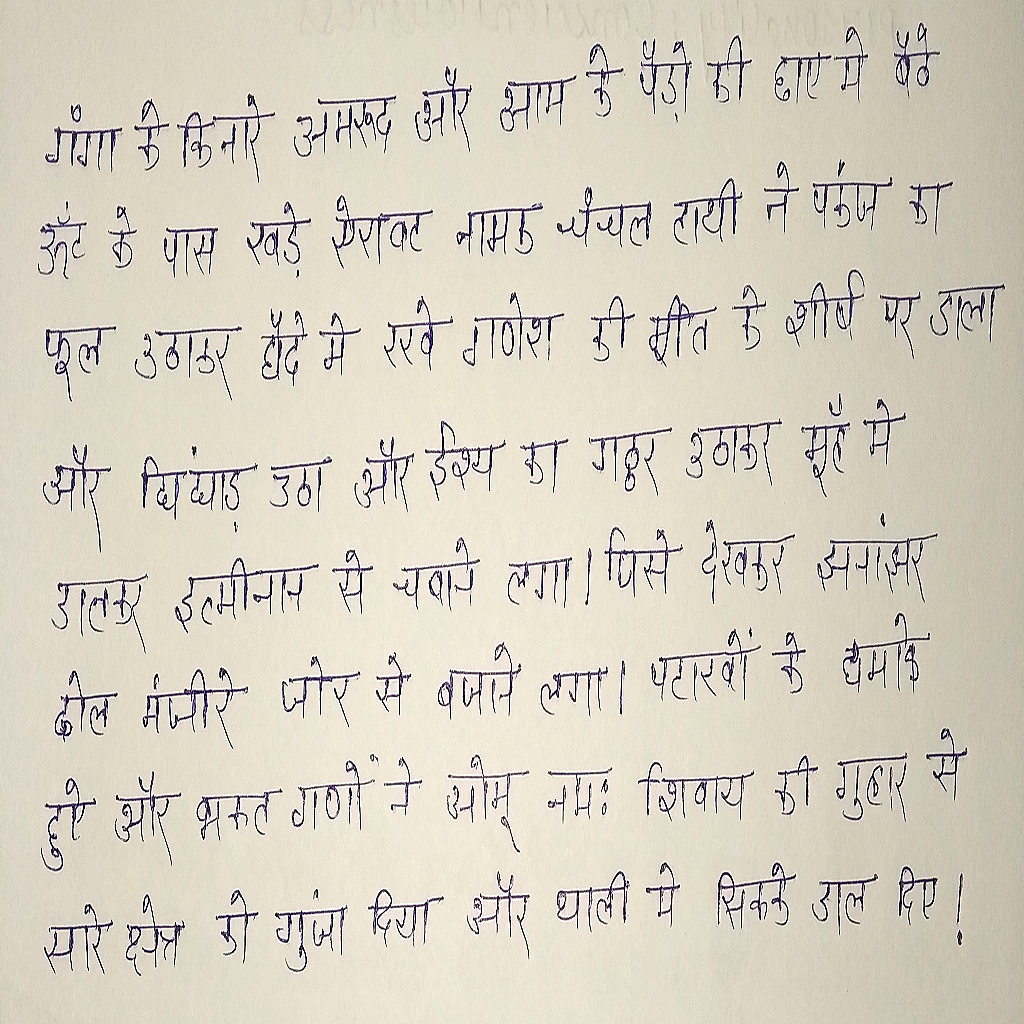 गंगा के किनारे अमरूद और आम के पेड़ो की छाए मे बैठे
ऊँट के पास खड़े ऐरावत नामक चंचल हाथी ने पंकज का
फूल उठाकर हौदे मे रखे गणेश की मूर्ति के शीर्ष पर डाला
और चिंघाड़ उठा और ईख का गट्ठर उठाकर मुँह मे
डालकर इत्मीनान से चबाने लगा। जिसे देखकर झनांझर
ढोल मंजीरे जोर से बजाने लगा। पटाखों के धमाके
हुऐ और भक्त गणों ने ओम् नमः शिवाय की गुहार से
सारे क्षेत्र को गुंजा दिया और थाली मे सिक्के डाल दिए!